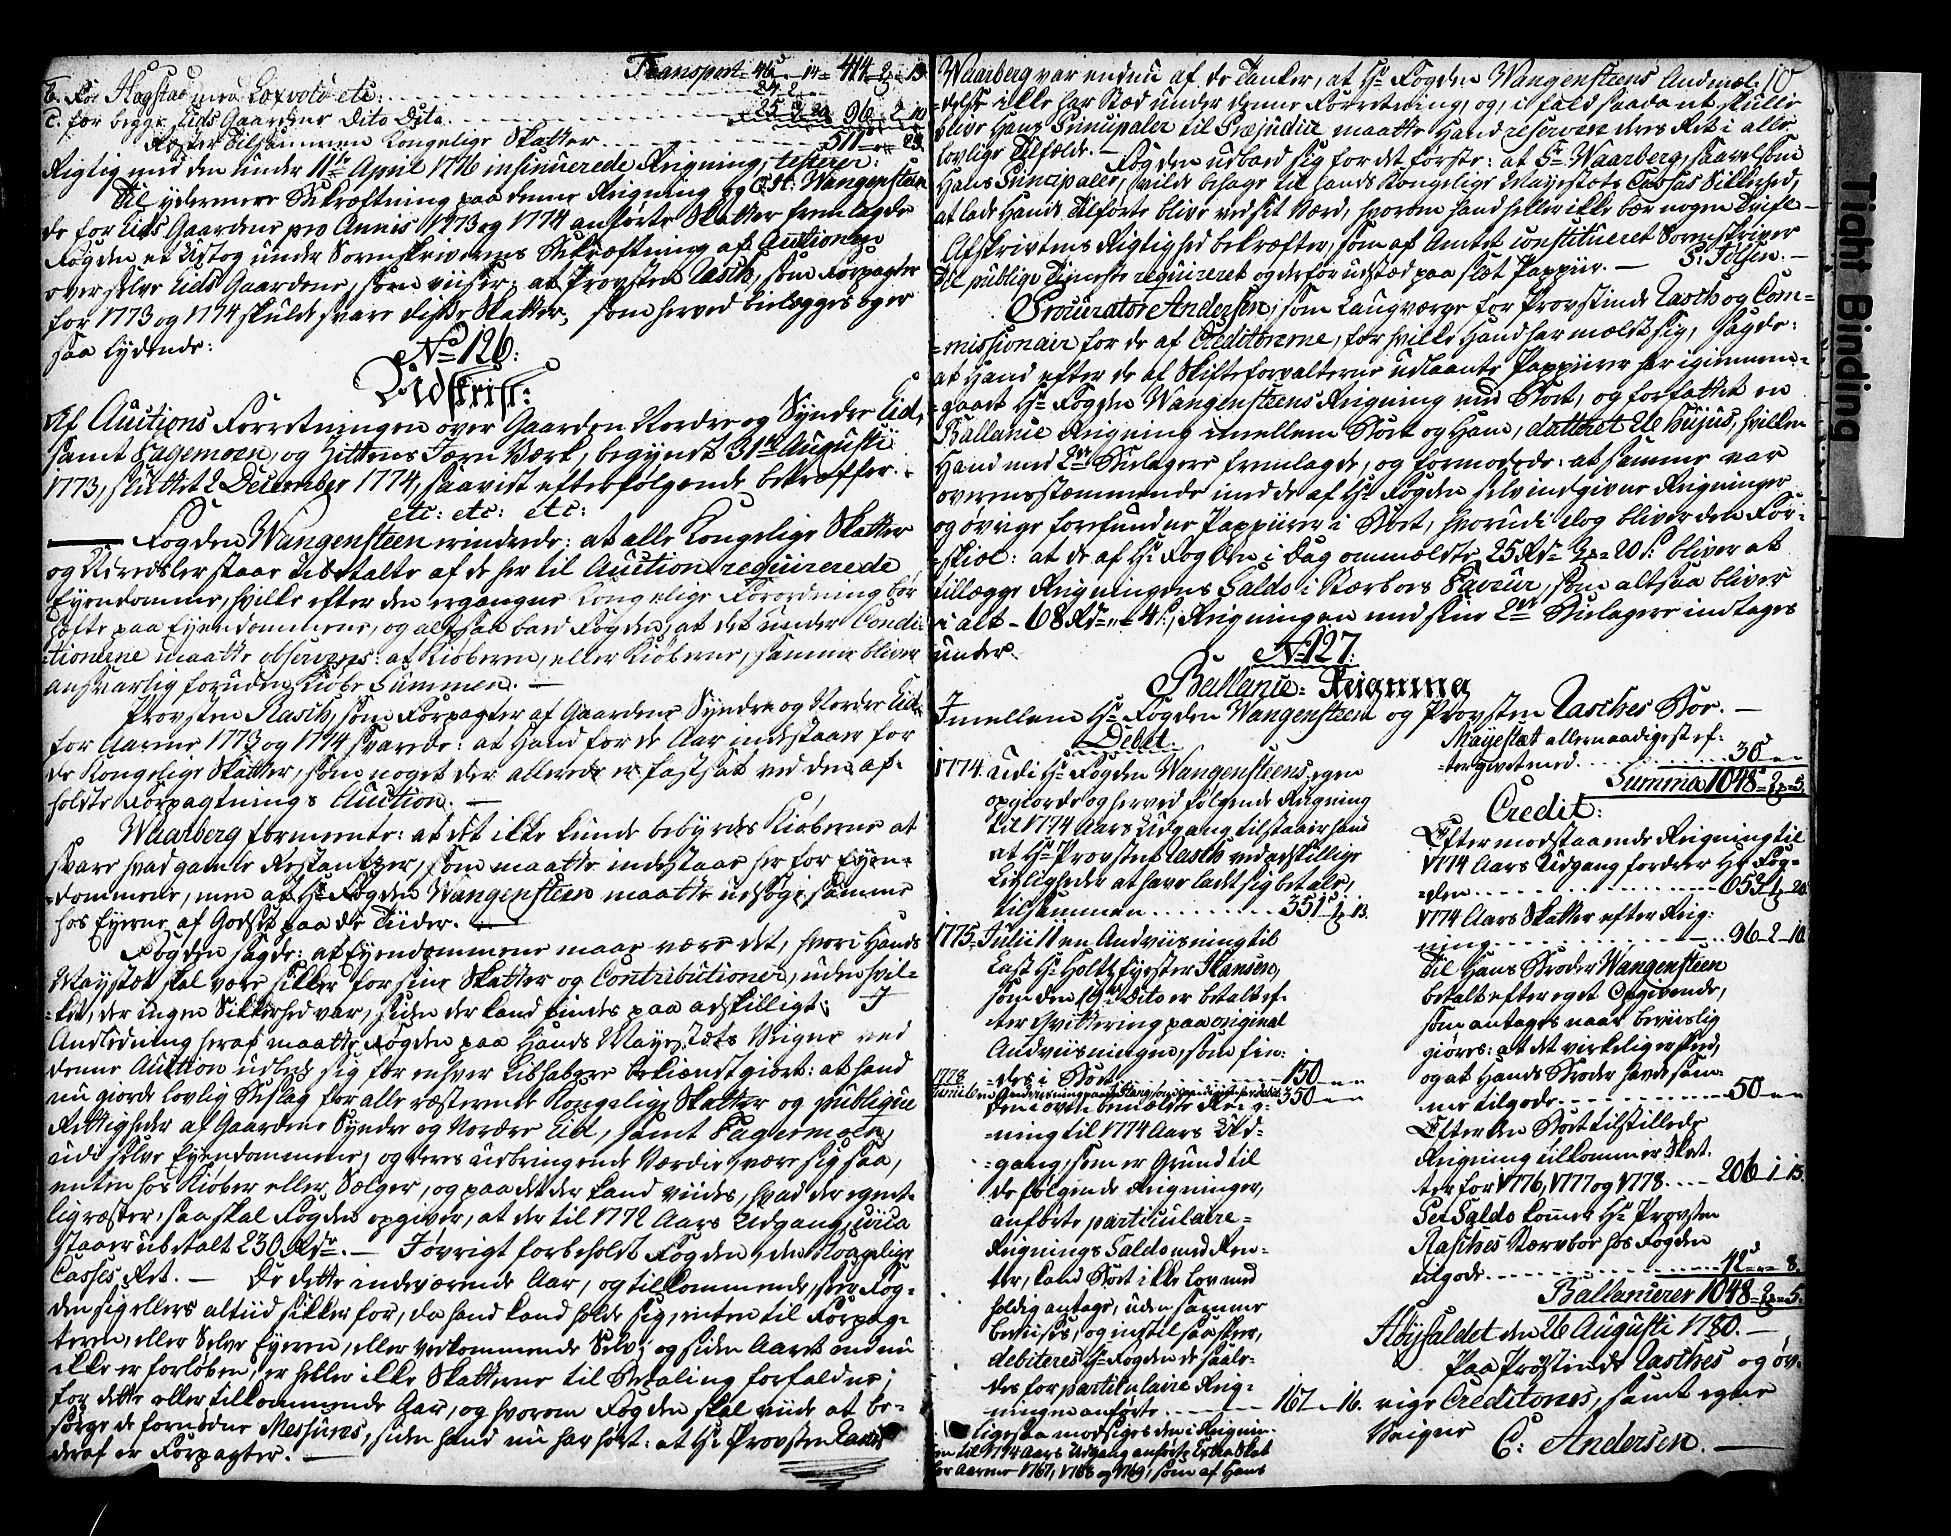 Transport 46 - 14 = 414 - 2 - 13
b. For Hogstad med Loxvold etc: 24. 2.
c. for begge Eids Gaardene Dito Dito 25. 3. 20 96. 2. 10
Rester Tilsammen Kongelige Skatter 511 - „ - 23.
Rigtig med den under 11te April 1776 insinuerede Reigning, testerer:
Til ydermere Bekræftning paa denne Reigning og
Wangensteen
de for Eids Gaardene pro Annis 1773 og 1774 anførte Skatter fremlagde
Fogden et Udtog under Sorenskriverens Bekræftning af Auctionen
over selve Eids Gaardene, som viiser: at Provsten Rasch, som Forpagter
for 1773 og 1774 skulde svare disse Skatter, som herved indlægges og er
saa lydende:
No 126:
Udskrift:
Af Auctions Forretningen over Gaarden Nordre og Syndre Eid,
samt Fagermoen, og Hittens Jern Værk, begyndt 31te Augusti
1773, sluttet 2 December 1774, saavist efterfølgende bekræfter.
etc: etc: etc:
Fogden Wangensteen erindrede: at alle Kongelige Skatter
og Udredsler staar ubetalte af de her til Auction requirerede
Eyendomme, hvilke efter den ergangne Kongelige Forordning bør
hæfte paa Eyendommene, og altsaa bad Fogden, at det under Condi-
tionerne maatte observeres: at Kiøberen, eller Kiøberne, samme bliver
ansvarlig foruden Kiøbe Summen. —
Provsten Rasch, som Forpagter af Gaardene Syndre og Nordre Eid
for Aarene 1773 og 1774 svarede: at Hand for de Aar indestaaer for
de Kongelige Skatter, som noget der allerede er fastsat ved den af-
holdte Forpagtnings Auction. —
Waarberg formeente: at det ikke kunde bebyrdes Kiøberne at
svare hvad gamle Restantzer, som maatte indestaae her for Eyen-
dommene, men at Hr Fogden Wangensteen maatte udsøge samme
hos Eyerne af Godset paa de Tiider. —
Fogden sagde: at Eyendommene maae være det, hvori Hands
Mayestæt skal være sikker for sine Skatter og Contributioner, uden hvil-
ken, der ingen Sikkerhed var, siden der kand findes paa adskilligt; I
Anledning heraf maatte Fogden paa Hands Mayestæts Veigne ved
denne Auction udbede sig for enhver Libhabere bekiændtgiort: at hand
nu giorde lovlig Beslag for alle resterende Kongelige Skatter og publique
Rettigheder af Gaardene Syndre og Nordre Eid, samt Fagermoen,
udi selve Eyendommene, og deres udbringende Værdie, være sig saa,
enten hos Kiøber eller Sælger, og paa det der kand viides, hvad der egent-
lig rester; saa skal Fogden opgiver, at der til 1772 Aars Udgang, circa
staaer ubetalt 230 Rdr. — I øvrigt forbeholdt Fogden, den Kongelige
Casses Ret. — De dette indeværende Aar, og tilkommende, seer Fog-
den sig ellers altiid sikker for, da hand kand holde sig, enten til Forpag-
teren, eller Selve Eyeren, eller vedkommende Selv; og siden Aaret endnu
ikke er forløben, er heller ikke Skatterne til Betaling forfaldne;
for dette eller tilkommende Aar, og hvorom Fogden skal viide at be-
sørge de fornødne Messures, siden hand nu har hørt: at Hr Provsten Rasch
deraf er Forpagter. —
10
Waarberg var endnu af de Tanker, at Hr Fogden Wangensteens Anmel-
delse ikke har Sted under denne Forretning, og, i fald saadant skulle
blive Hans Principaler til Præjudice, maatte Hand reservere deres Ret i alle
lovlige Tilfælde. — Fogden udbad sig for det første: at Sr Waarberg, saavelsom
Hans Principaler, vilde behage til Hands Kongelige Mayestæts Cassas Sikkerhed,
at lade Hands Tilførte blive ved sit Værd, hvorom hand heller ikke bær nogen Tvifl —
Afskrivtens Rigtighed bekræfter, som af Amtet constitueret Sorenskriver
til publiqe Tieneste requireret og derfor udstæd paa slæt Papiir. — P: Persen. —
Procurator Andersen, som Laugværge for Provstinde Rasch og Com-
missionair for de af Creditorerne, for hvilke Hand har mældt sig, sagde:
at Hand efter de af Skifteforvalterne udlaante Papiirer har igiennem-
gaaet Hr Fogden Wangensteens Reigning med Boet, og forfattet en
Ballance Reigning imellem Boet og Ham, datteret 26 hujus, hvilken
Hand med 2de Bielagere fremlagde, og formodede: at samme var
overensstæmmende med de af Hr Fogden selv indgivne Reigninger
og øvrige forefundne Papiirer i Boet, hvorudi dog bliver den For-
skiæl: at de af Hr Fogden i Dag ommeldte 25 Rdr 3 - 20 s bliver at
tillægge Reigningens Saldo i Stervboes Faveur, som altsaa bliver
i alt - 68 Rdr „ - 4 s; Reigningen med sine 2de Bielagere indtages
under
No 127:
Ballance Reigning
Imellem Hr Fogden Wangensteen og Provsten Rasches Boe. —
Debet:
1774. Udi Hr Fogden Wangensteens egen
opgiorde og herved følgende Reigning
til 1774 Aars Udgang tilstaaer hand
at Hr Provsten Rasch ved adskillige
Leiligheder at have ladt sig betale,
tilsammen 351 - 1 - 13.
1775. Julii 11 en Andviisning til
Last Hr Holtz Eyester Hansen,
som den 19de Dito er betalt ef-
ter Qvittering paa original
Andviisningen, som fin-
des i Boet 150 - „ - „
1778
350 - „ - „
Den oven bemældte Reig-
ning til 1774 Aars Ud-
gang, som er Grund til
de følgende Reigninger,
anførte particulaire
Reignings Saldo med Ren-
ter, kand Boet ikke lov med
holdig antage, uden samme
bevises, og indtil saa skeer,
debiteres Hr Fogden de saale-
des for particulaire Reig-
ningen anførte 167 - „ - 16.
Ligesaa modsiges den i Reignin-
gen til 1774 Aars Udgang anførte Extra Skat
for Aarene 1767, 1768 og 1769, som af Hans
Mayestæt allernaadigst ef-
tergivet med 30 - „ - „
Summa 1048 - 2 - 5.
Credit:
Efter modstaaende Reigning til
1774 Aars Udgang fordrer Hr Fog-
den 653 - 1 - 20
1774 Aars Skatter efter Reig-
ning 96 - 2 - 10.
Til Hans Broder Wangensteen
betalt efter eget Opgivende,
som antages naar beviislig
giøres: at det virkelig er skeed,
og at Hands Broder havde sam-
me tilgode 50 - „ - „
Efter den Boet tilstillede
Reigning tilkommer Skat-
ter for 1776, 1777 og 1778 206 - 1 - 15.
Per Saldo komer Hr Provsten
Rasches Stervboe hos Fogden
tilgode 42 - „ - 8.
Ballancerer 1048 - 2 - 5.
Høysaldet den 26 Augusti 1780. —
Paa Provstinde Rasches og øv-
rige Creditores, samt egne
Veigne
C: Andersen. —
Tight Binding